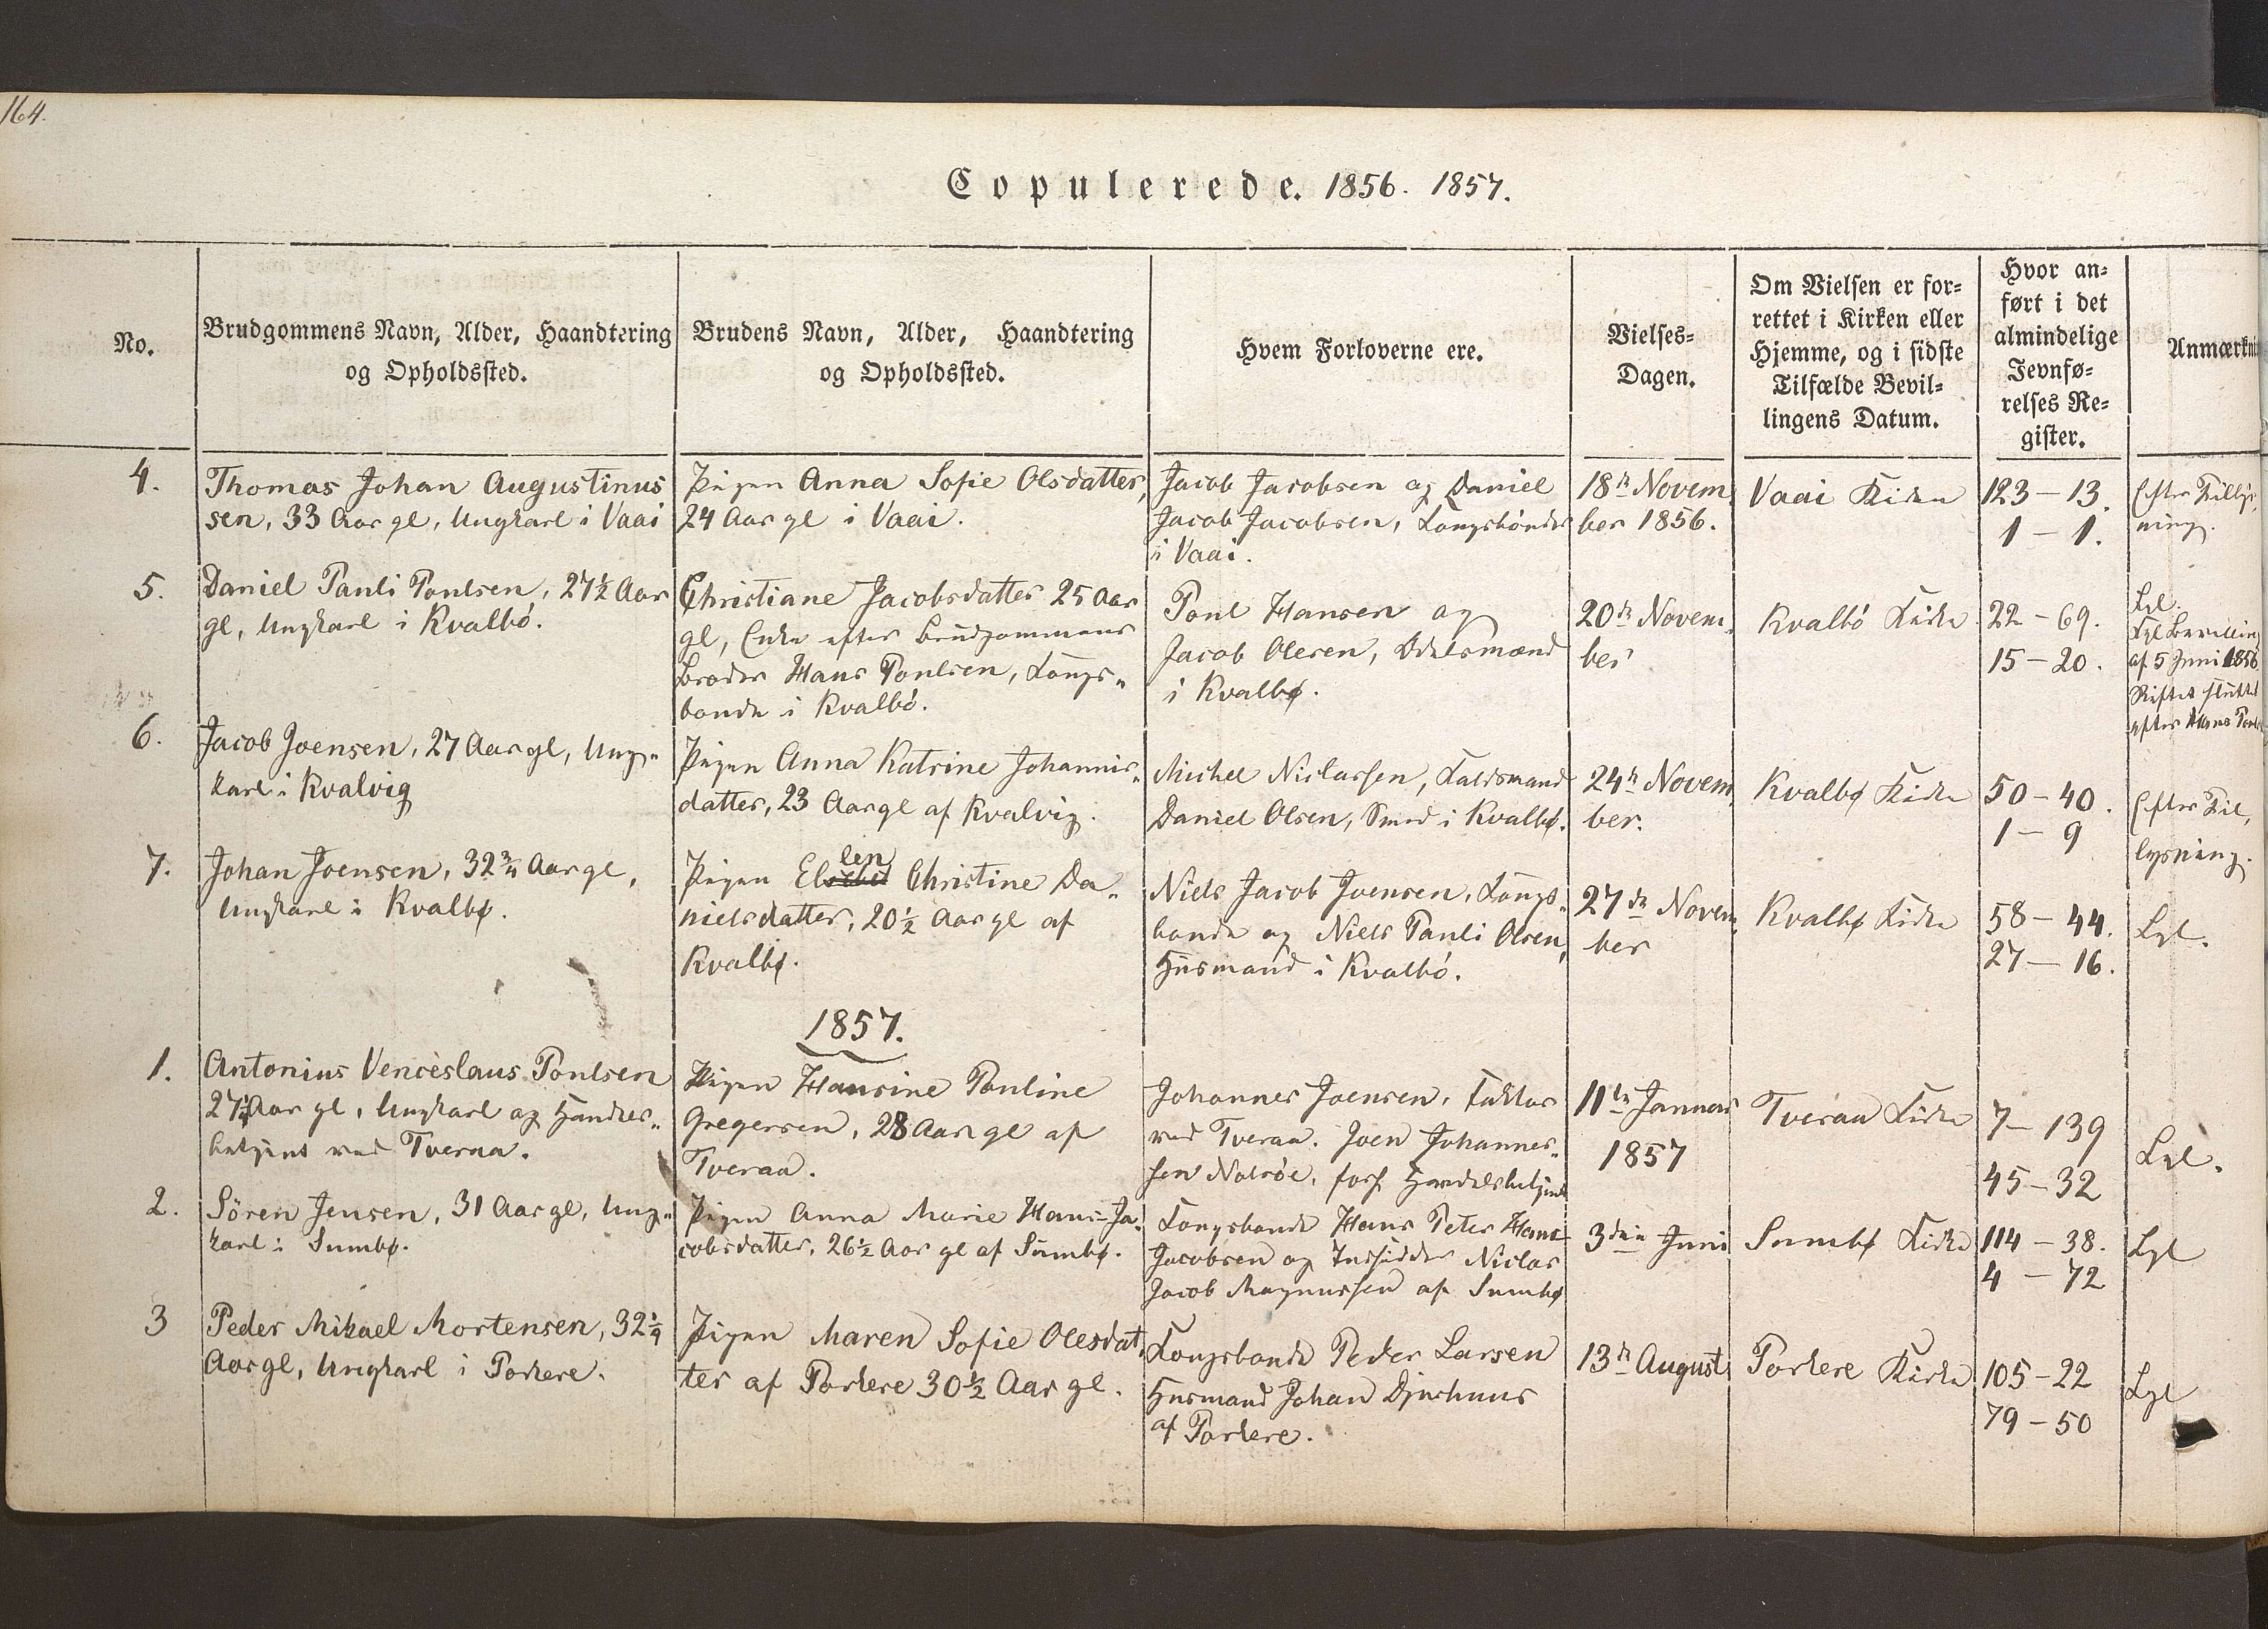 164.
Copulerede. 1856. 1857.
No.
Brudgommens Navn, Alder, Haandtering
og Opholdssted.
Brudens Navn, Alder, Haandtering
og Opholdssted.
Hvem Forloverne ere.
Vielses-
Dagen.
Om Vielsen er for-
rettet i Kirken eller
Hjemme, og i sidste
Tilfælde Bevil-
lingens Datum.
Hvor an-
ført i det
almindelige
Jevnfø-
relses Re-
gister.
Anmærkni
4.
Thomas Johan Augustinus
sen, 33 Aar gl, Ungkarl i Vaai
Pigen Anna Sofie Olsdatter,
24 Aar gl i Vaai.
Jacob Jacobsen og Daniel
Jacob Jacobsen, Kongsbönder
i Vaai.
18de Novem
ber 1856.
Vaai Kirke
123-13.
1-1.
Efter Tillys,
ning.
5.
Daniel Pauli Poulsen, 27½ Aar
gl, Ungkarl i Kvalbó.
Christiane Jacobsdatter 25 Aar
gl, Enke efter Brudgommens
Broder Hans Poulsen, Kongs„
bonde i Kvalbó.
Poul Hansen og
Jacob Olesen, Odelsmænd
i Kvalbø.
20de Novem,
ber
Kvalbó Kirke
22-69.
15-20.
Lyl.
Kgl Bevilling
af 5 Juni 1856
Skiftet sluttet
efter Hans Poul
6.
Jacob Joensen, 27 Aar gl, Ung„
karl i Kvalvig
Pigen Anna Katrine Johannis„
datter, 23 Aar gl af Kvalvig.
Michel Niclassen,
Daniel Olsen, Smed i Kvalbø.
24de Novem,
ber.
Kvalbø Kirke
50-40.
1-9
Efter Til,
lysning.
7.
Johan Joensen, 32¾ Aar gl,
Ungkarl i Kvalbø.
len
Pigen Elsebet Christine Da„
nielsdatter, 20½ Aar gl af
Kvalbø.
Niels Jacob Joensen, Kongs„
bonde og Niels Pauli Olsen,
Húsmand i Kvalbó.
27de Novem,
ber
Kvalbø Kirke
58-44.
27-16.
Lyl.
1857.
1.
Antonius Venceslaus Poulsen
27½ Aar gl, Ungkarl og Handels„
betjent ved Tveraa.
Pigen Hansine Pouline
Gregersen, 28 Aar gl af
Tveraa.
Johannes Joensen, Faktor
ved Tveraa. Joen Johannes„
sen Nolsöe, forh Handelsbetjent
11te Januar
1857
Tveraa Kirke
7-139
45-32
Lyl.
2.
Sören Jensen, 31 Aar gl, Ung„
karl i Sumbø.
Pigen Anna Marie Hans-Ja„
cobsdatter, 26½ Aar gl af Sumbø.
Kongsbonde Hans Peter Hans
Jacobsen og Indsidder Niclas
Jacob Magnussen af Sumbø
3die Juni
Sumbø Kirke
114-38.
4-72
Lyl
3
Peder Mikael Mortensen, 32¼
Aar gl, Ungkarl i Porkere.
Pigen Maren Sofie Olesdat,
ter af Porkere 30½ Aar gl.
Kongsbonde Peder Larsen
Husmand Johan Djurhuus
af Porkere.
13de August
Porkere Kirke
105-22
79-50
Lyl